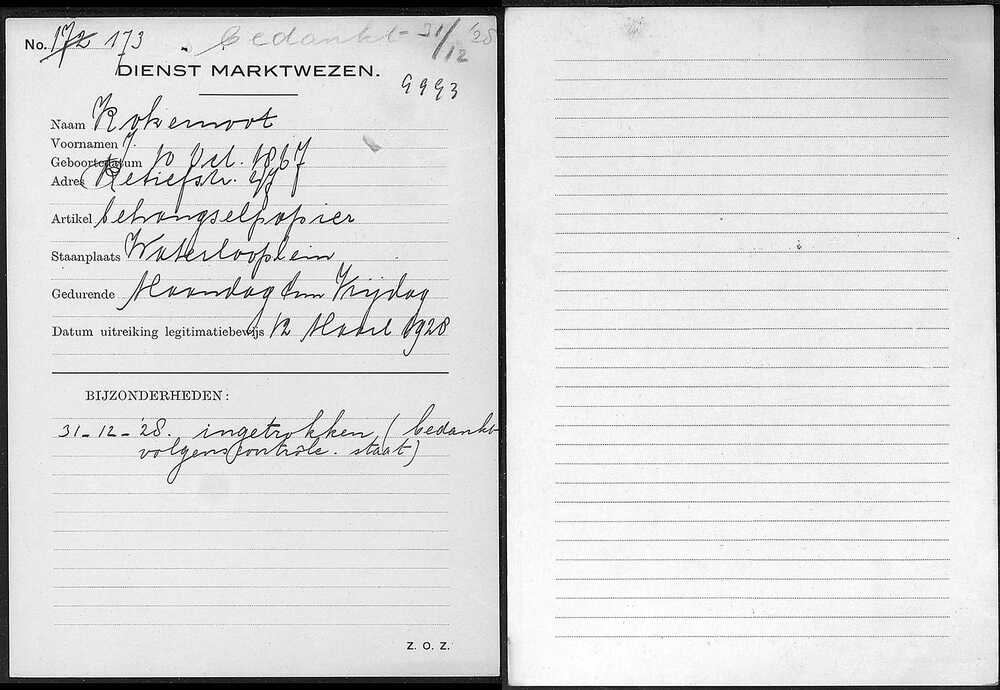 No. 172 173 bedankt 31/12 '28
DIENST MARKTWEZEN.
9993
Naam Kokernoot
Voornamen J.
Geboortedatum 10 Oct. 1867
Adres Retiefstr.
Artikel behangselpapier
Staanplaats Waterlooplein
Gedurende Maandag t/m Vrijdag
Datum uitreiking legitimatiebewijs 12 Maart 1928
BIJZONDERHEDEN:
31-12-'28. ingetrokken (bedankt
volgens contrôle. staat)
Z. O. Z.